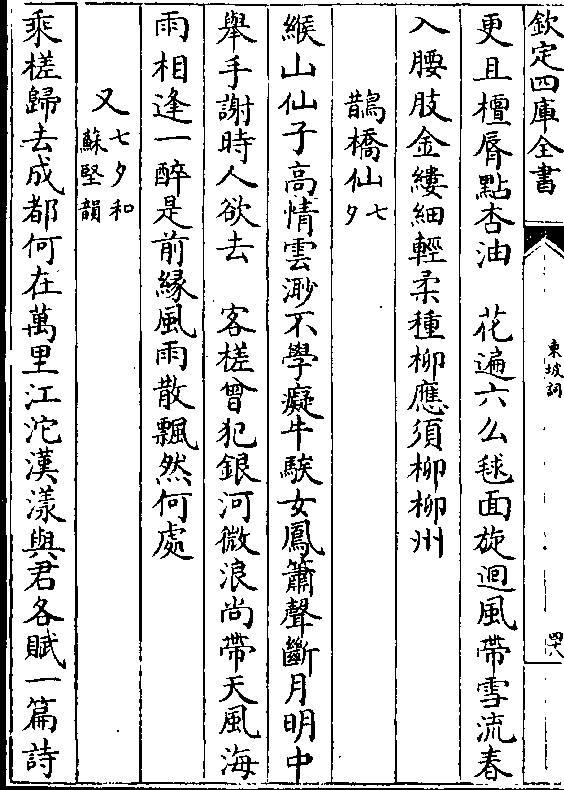 欽定四庫全書
東坡詞
四十八
更且檀唇點杏油　花遍六么毬面旋迴風帶雪流春
入腰肢金縷細輕柔種柳應須柳柳州
鵲橋仙七夕
緱山仙子高情雲渺不學癡牛騃女鳳簫聲斷月明中
舉手謝時人欲去　客槎曾犯銀河微浪尚帶天風海
雨相逢一醉是前緣風雨散飄然何處
又七夕和蘇堅韻
乘槎歸去成都何在萬里江沱漢漾與君各賦一篇詩